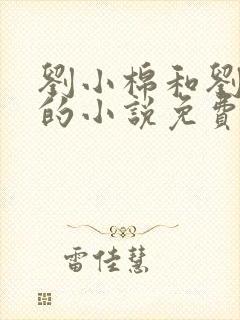 劉小棉和劉
的小說免費
雷佳慧